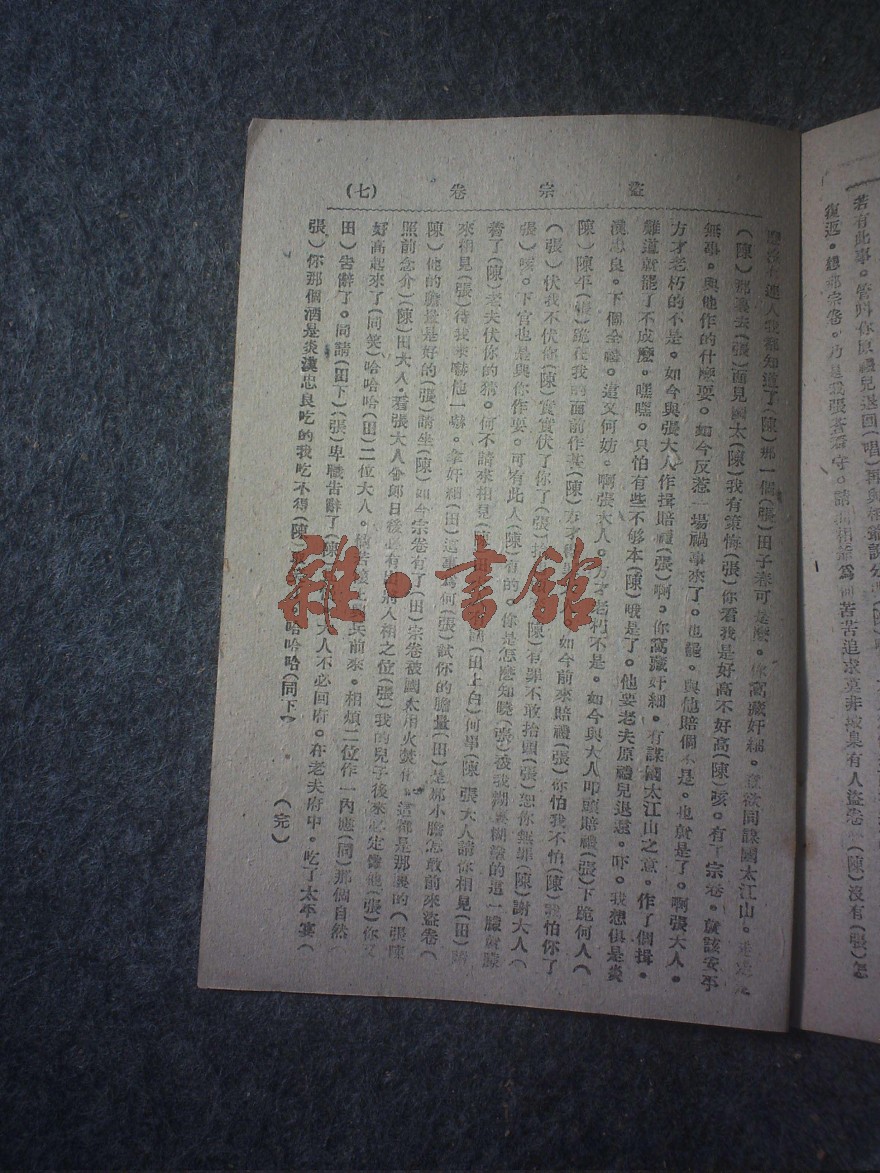 若有此事。管叫你原禮兒退回(唱)
復返。想那宗卷。乃是我張蒼看守。請問相爺爲何苦苦追求莫非城臬有人盜卷(陳)沒有(張)怎
盜宗卷 (七)
連人我都知道了(陳)那一個(張)田子春可是麼。你窩藏奸細。意欲同謀國太江山。
(陳)那裏去(張)面見國太(陳)我有策悔(張)你看我是好高不好高(陳)咳。有了宗卷。就該安平
無事。與他作的什麼耍。如今反惹一場禍事來了。也罷。與他賠個不是。也就是了。啊張大人。
方才老朽的不是。如今與張大人作揖賠禮(張)啊。你窩藏奸細。有謀國太江山之意。作了個揖。
難道就罷了不成麼。嘿嘿。只怕有些不够本(陳)哦是了。他要老夫原禮兒退還。吓。我想俱是炎
漢忠良。下個全禮。這又何妨。啊張大人。方才老朽不是。如今與大人叩頭賠禮(張)下跪何人(
陳)陳平(張)跪在我的面前作甚(陳)方才 如今前來賠禮(張)你怕我不怕(陳)我怕你了
(張)伏我不伏你(陳)實實伏了你了(張) (陳)有罪不敢抬頭(張)恕你無罪(陳)謝大人(
張)咳。下官也是與你作耍。可有此人(陳)有的。你是怎麼知曉(張)被我糊裏糊塗的這一朦就朦
着了(陳)老夫伏你的猜。何不請來相見 (田上白)何事(陳 張大人請你相見(田)請
來相見(張)待我來嚇他一嚇。拿奸細(田)這事爲何(張)試你的膽量(田)是那小膽怎敢前來盜卷(
陳)他的膽量是好的(張)請坐(陳)如今宗卷有了(田)宗卷被國太用火焚化。這都是那裏的(張陳
照前念介)(陳)田大人。看張大人令郎日後必有 人相之位(張)我的兒子後來必定像他(張)你
好高起來了(同笑)哈哈哈(田)二位大人。倘若 兵前來。相煩二位作一內應(同)那個自然
田)告辭了。同請(田下)(張)卑職告辭了(陳 大人不必回府。在老夫府中。吃了太平宴(
張)你那個酒是炎漢忠良吃的我吃不得(陳) 哈哈哈(同下)
(完)
雜·書舘